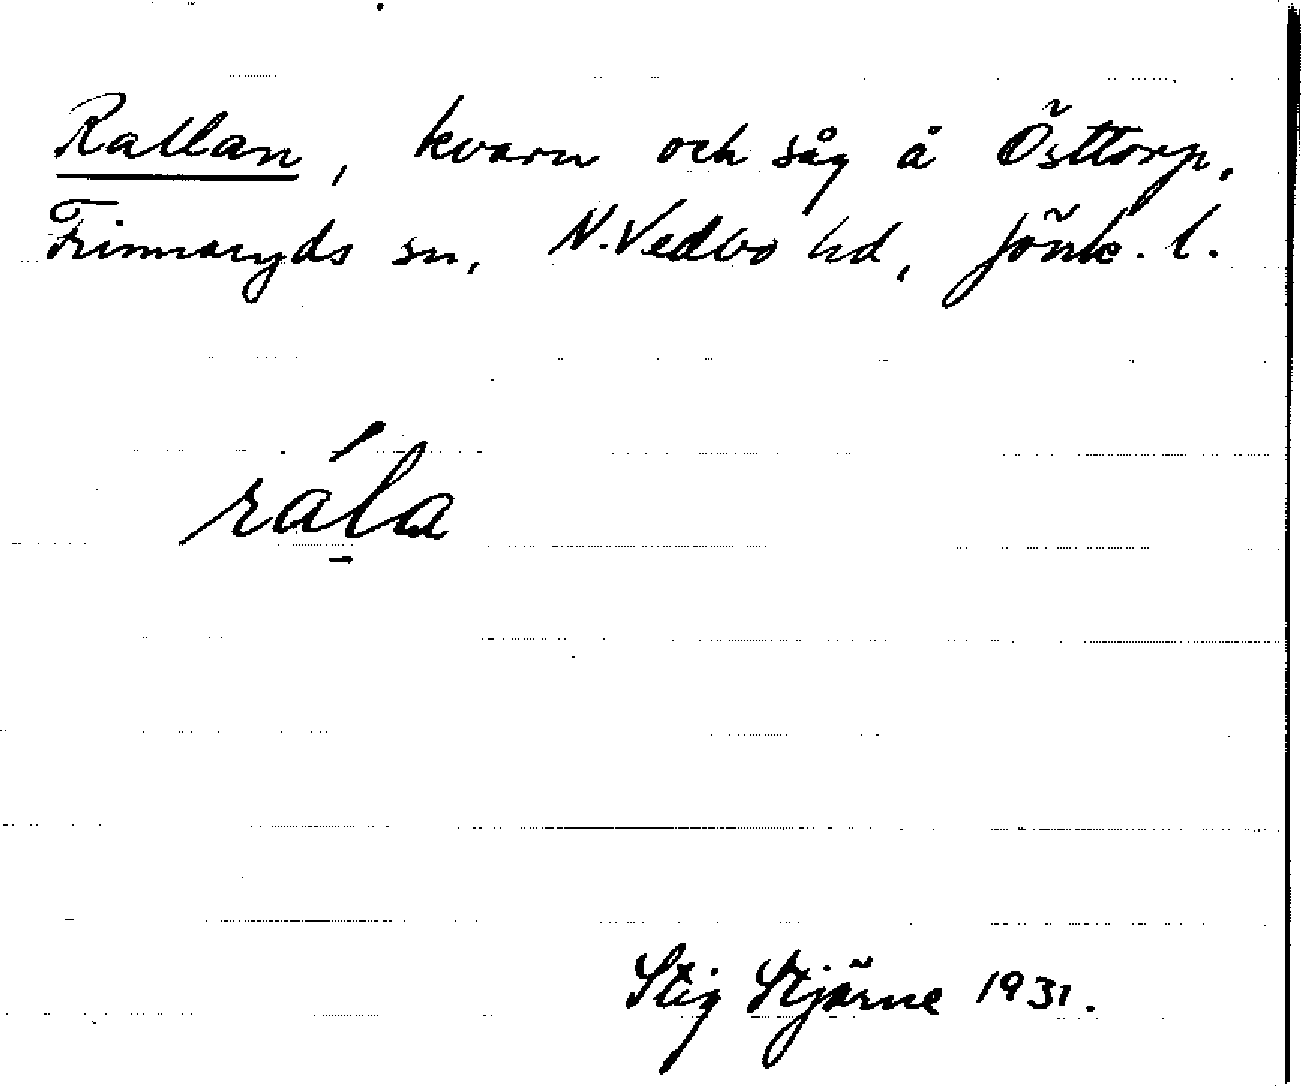 Rallan, kvarn och såg å Östtorp,
Finnaryds sn, N. Vedbo hd, Jönk. l.
rála
Stig Stjärne 1931.